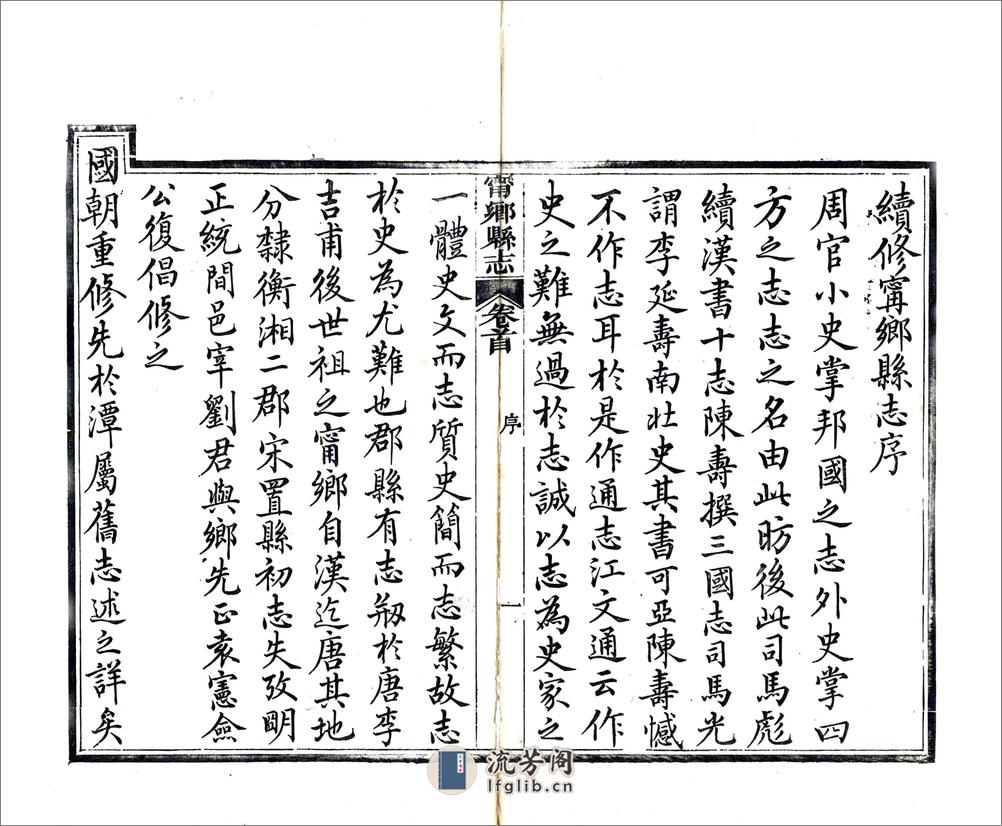 續修甯鄉縣志序
周官小史掌邦國之志外史掌四
方之志志之名由此昉後此司馬彪
續漢書十志陳壽撰三國志司馬光
謂李延壽南北史其書可亞陳壽憾
不作志耳於是作通志江文通云作
史之難無過於志誠以志為史家之
甯鄉縣志
卷首
序
一
一體史文而志質史簡而志繁故志
於史為尤難也郡縣有志剏於唐李
吉甫後世祖之甯鄉自漢迄唐其地
分隸衡湘二郡宋置縣初志失攷明
正統間邑宰劉君與鄉先正袁憲僉
公復倡修之
國朝重修先於潭屬舊志述之詳矣
流芳阁
lfglib.cn